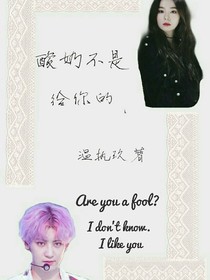 酸奶不是
给你的
温执玖著
Are you a fool?
I don't know.
I like you